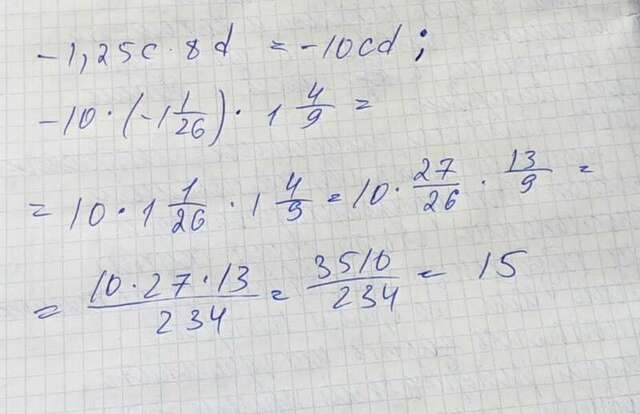 -1,25c · 8d = -10cd;
-10 · (-1 1/26) · 1 4/9 =
= 10 · 1 1/26 · 1 4/9 = 10 · 27/26 · 13/9 =
= 10·27·13/234 = 3510/234 = 15